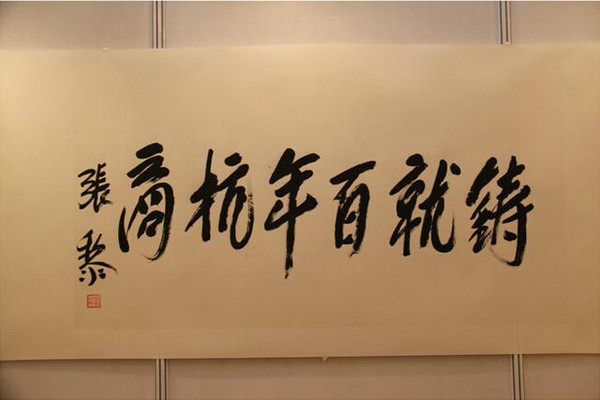 鑄就百年杭商
張黎